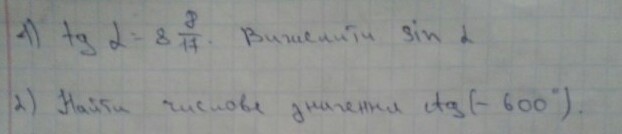 1) tg α = 8 8/17. Вичислити sin α
2) Найти числове значення ctg(- 600°).